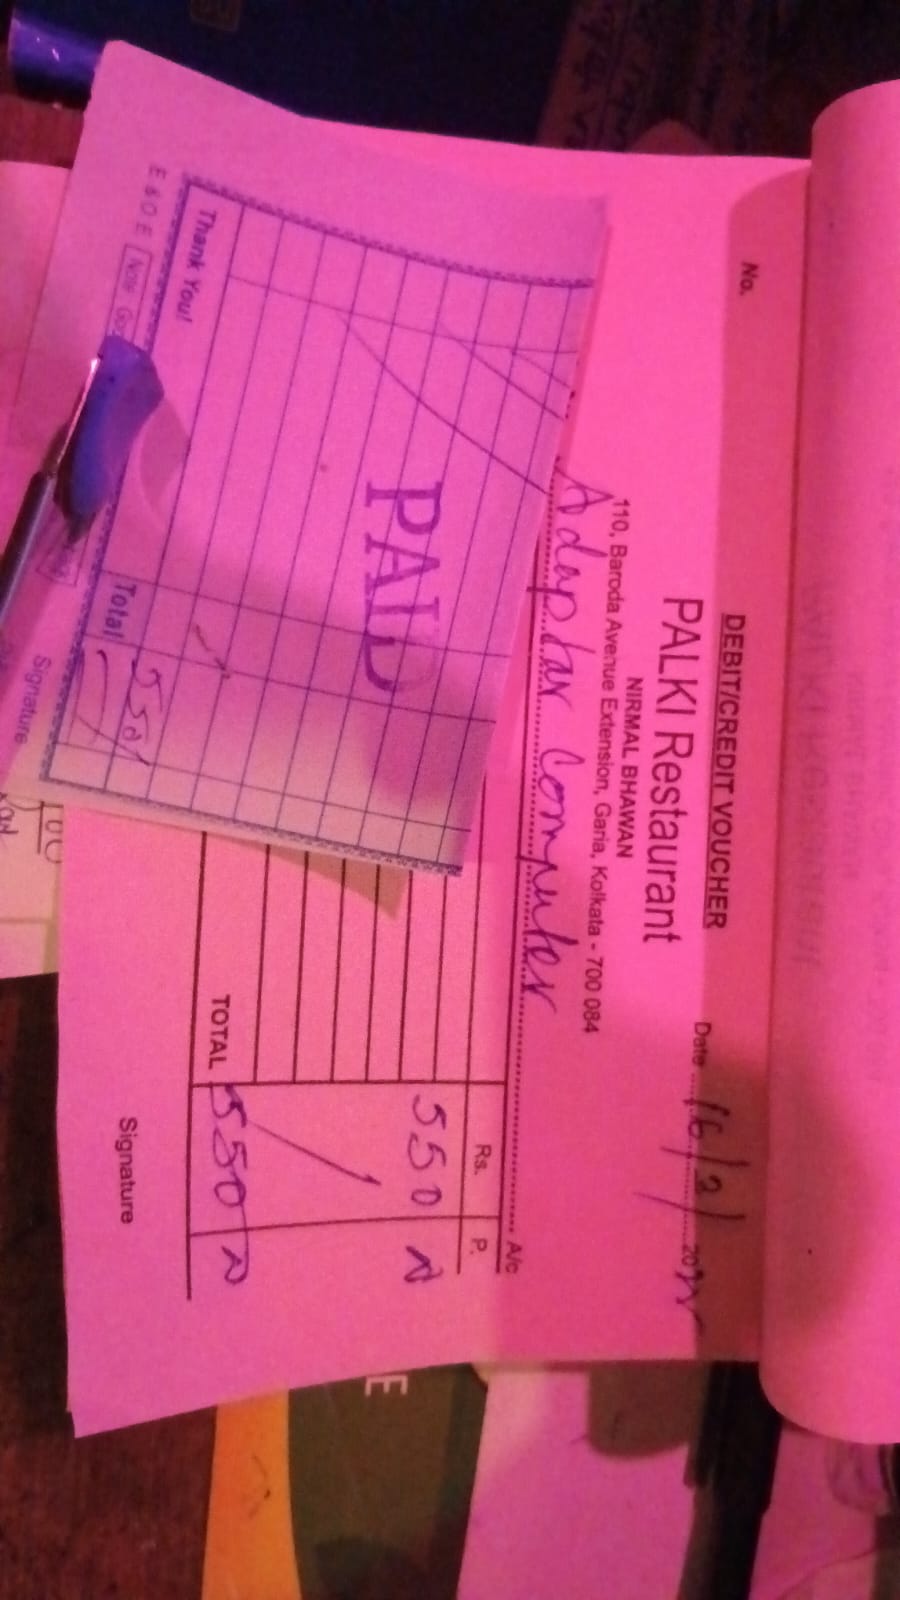 No.
DEBIT/CREDIT VOUCHER
PALKI Restaurant
Date 16/2/2022
NIRMAL BHAWAN
110, Baroda Avenue Extension, Garia, Kolkata - 700 084
Adaptar Computer A/c
Rs. P.
550
TOTAL 550
Signature
PAID
Thank You!
Total 550/
E & O E
Note
Signature